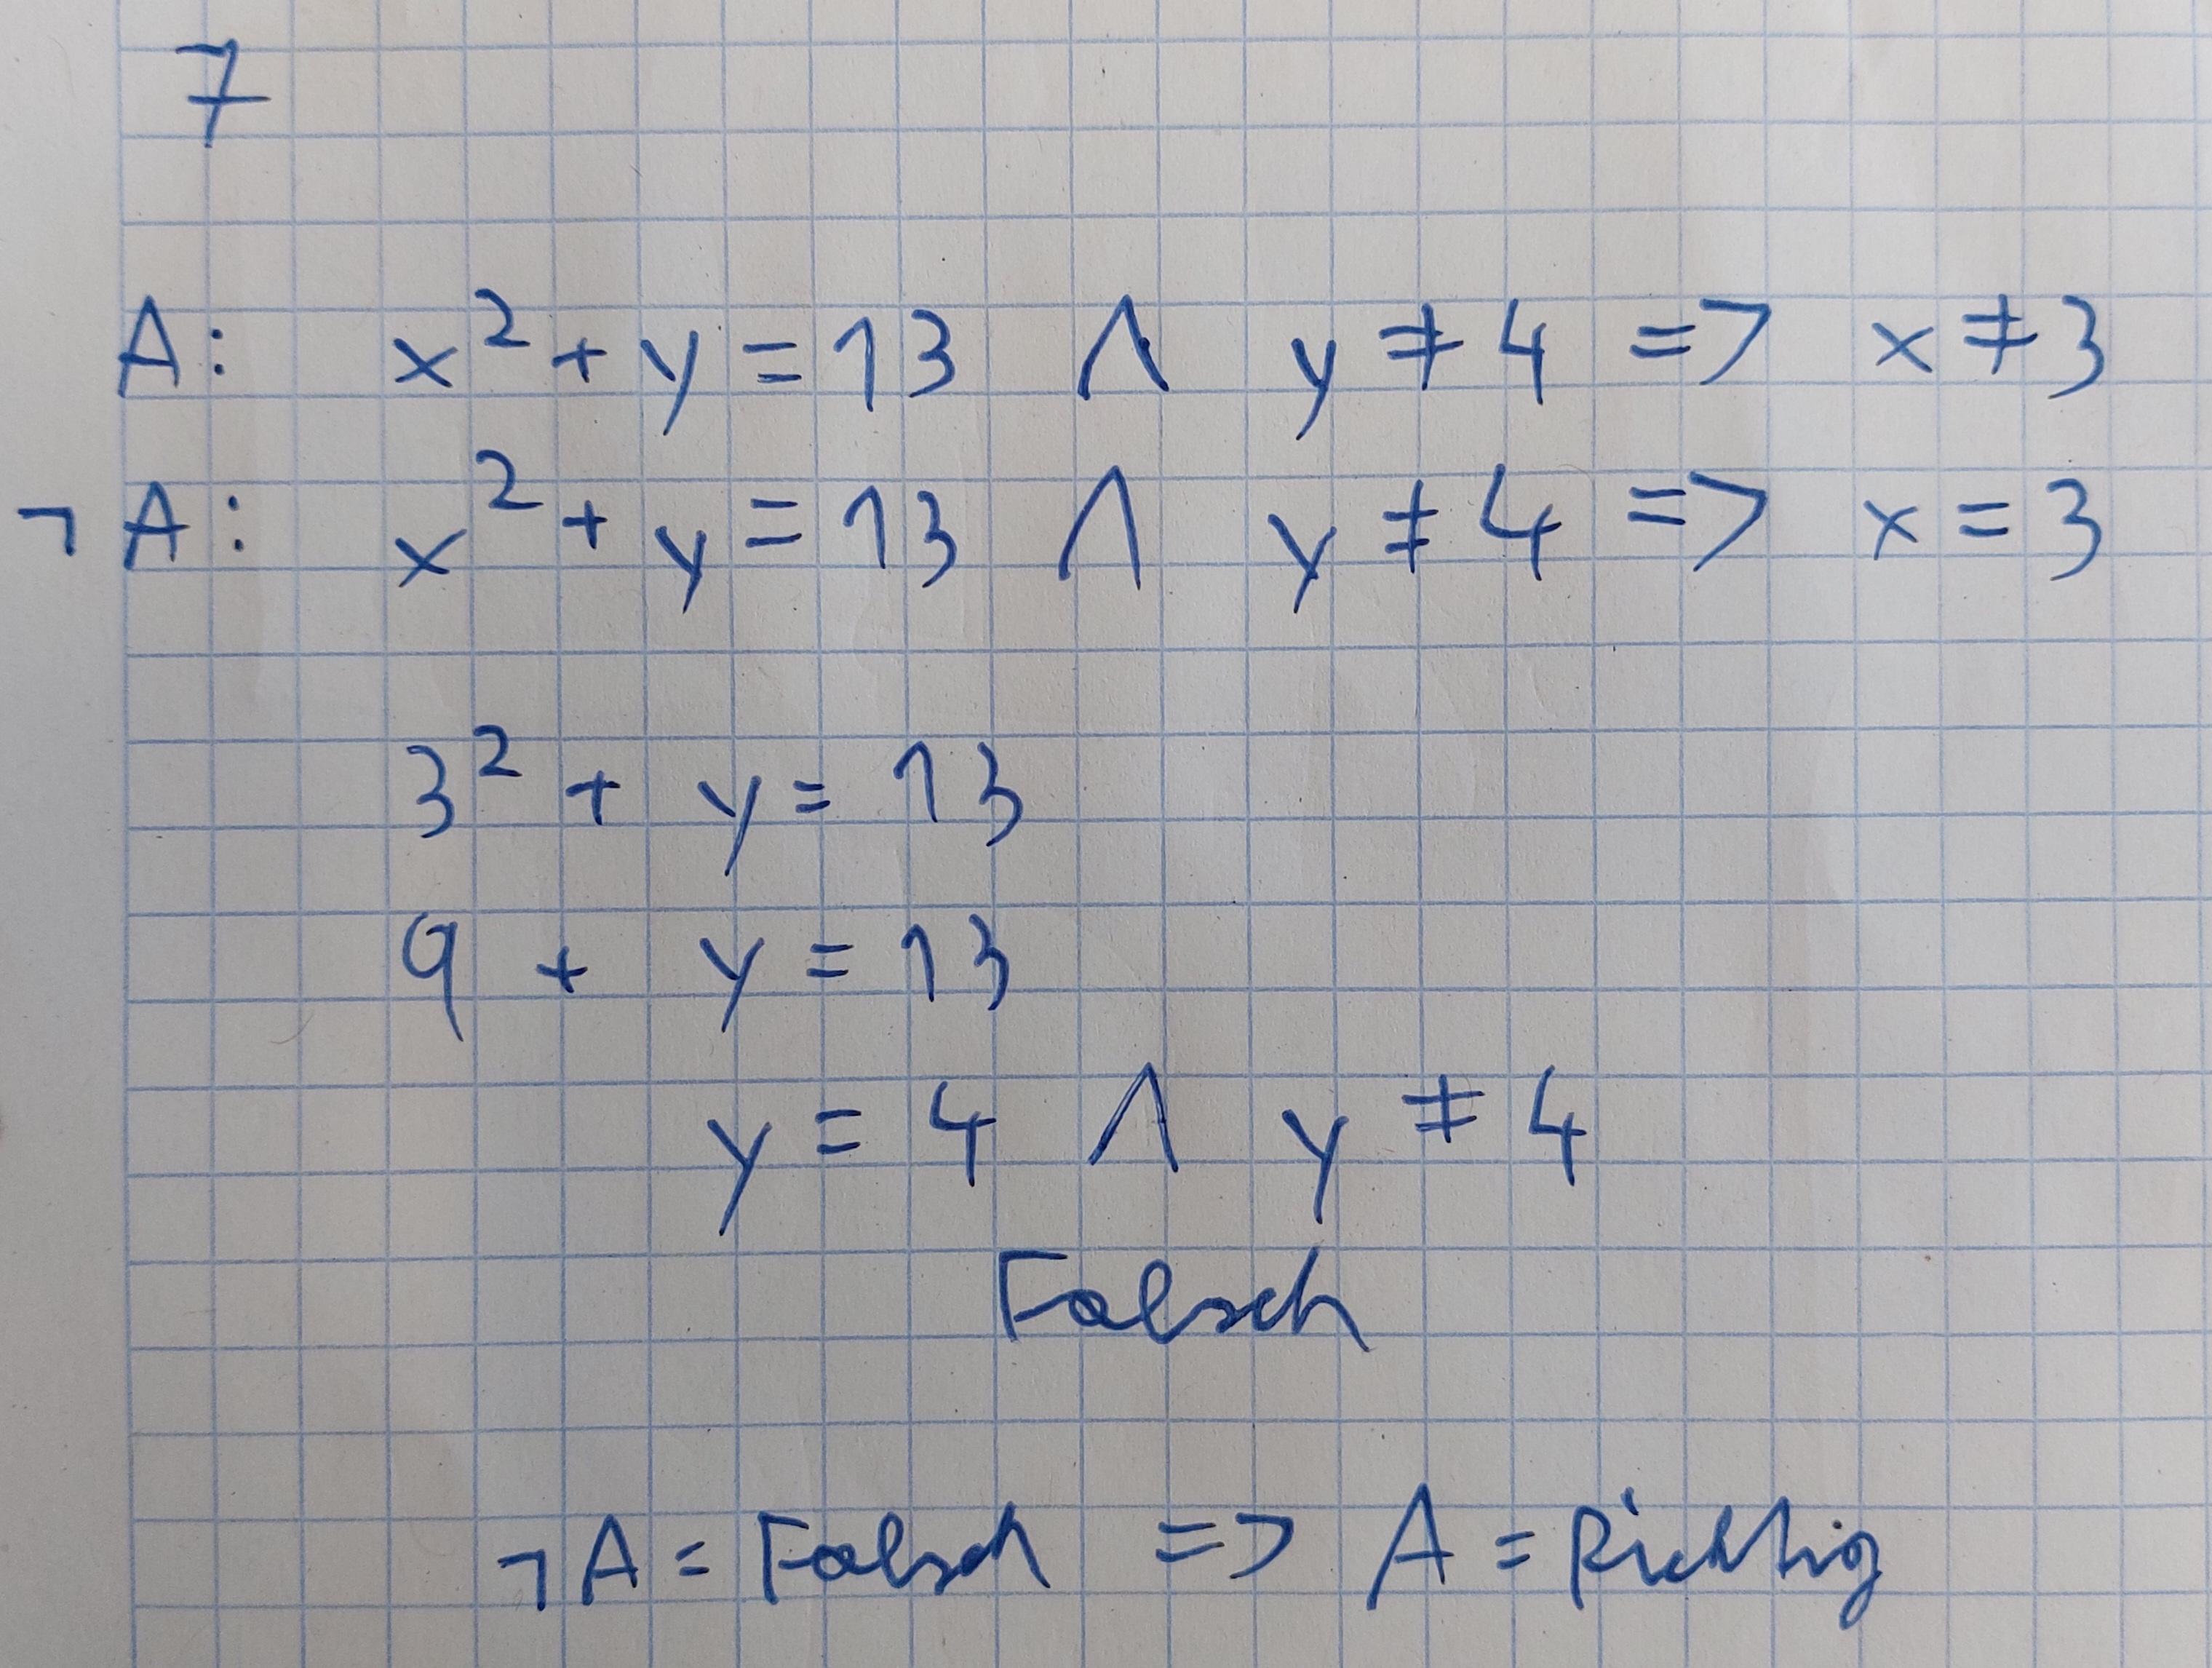 7
A: x² + y = 13 ∧ y ≠ 4 => x ≠ 3
¬A: x² + y = 13 ∧ y ≠ 4 => x = 3
3² + y = 13
9 + y = 13
y = 4 ∧ y ≠ 4
Falsch
¬A = Falsch => A = Richtig